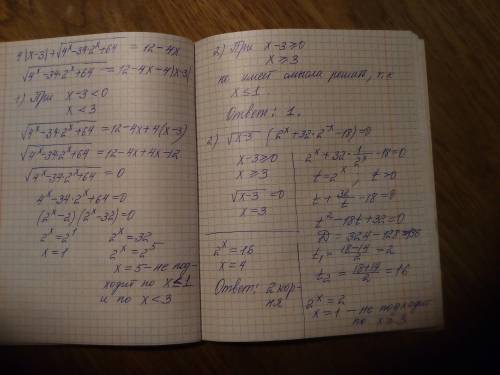 4|x-3|+√(4ˣ-34·2ˣ+64) = 12-4x
√(4ˣ-34·2ˣ+64) = 12-4x-4|x-3|
1) При x-3<0
x<3
√(4ˣ-34·2ˣ+64) = 12-4x+4(x-3)
√(4ˣ-34·2ˣ+64) = 12-4x+4x-12
√(4ˣ-34·2ˣ+64) = 0
4ˣ-34·2ˣ+64=0
(2ˣ-2)(2ˣ-32)=0
2ˣ=2¹ 2ˣ=32
x=1 2ˣ=2⁵
x=5-не под-
ходит по x≤1
и по x<3
2) При x-3≥0
x≥3
не имеет смысла решать, т.к
x≤1
Ответ: 1.
2) √(x-3) (2ˣ+32·2⁻ˣ-18)=0
x-3≥0
x≥3
√(x-3)=0
x=3
2ˣ+32·1/2ˣ-18=0
t=2ˣ, t>0
t+32/t-18=0
t²-18t+32=0
D=324-128=196
t₁=(18-14)/2=2
t₂=(18+14)/2=16
2ˣ=2
x=1-не подходит
по x≥3
2ˣ=16
x=4
Ответ: 2 кор-
ня